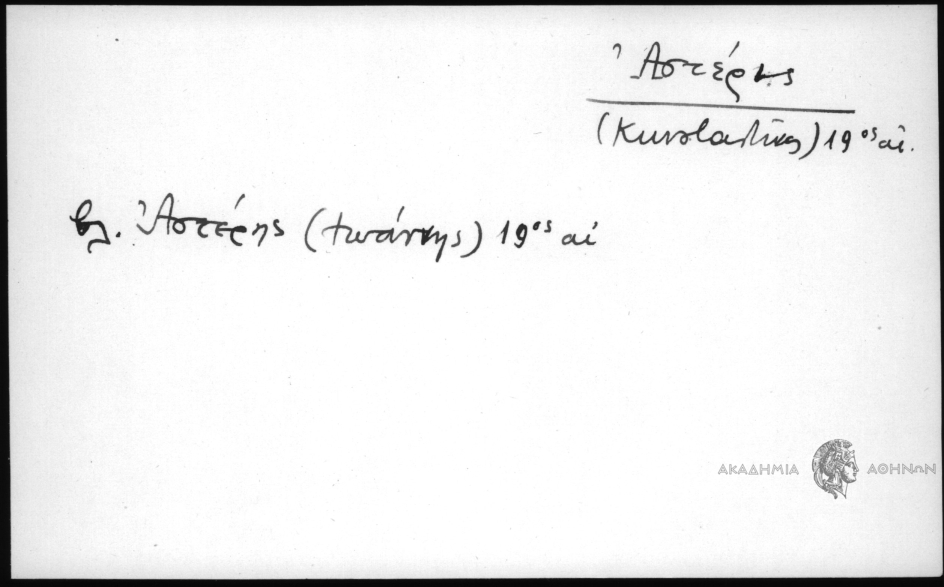 Ἀστέρης
(Κωνσταντῖνος) 19ος αἰ.
βλ. Ἀστέρης (Ἰωάννης) 19ος αἰ
ΑΚΑΔΗΜΙΑ ΑΘΗΝΩΝ